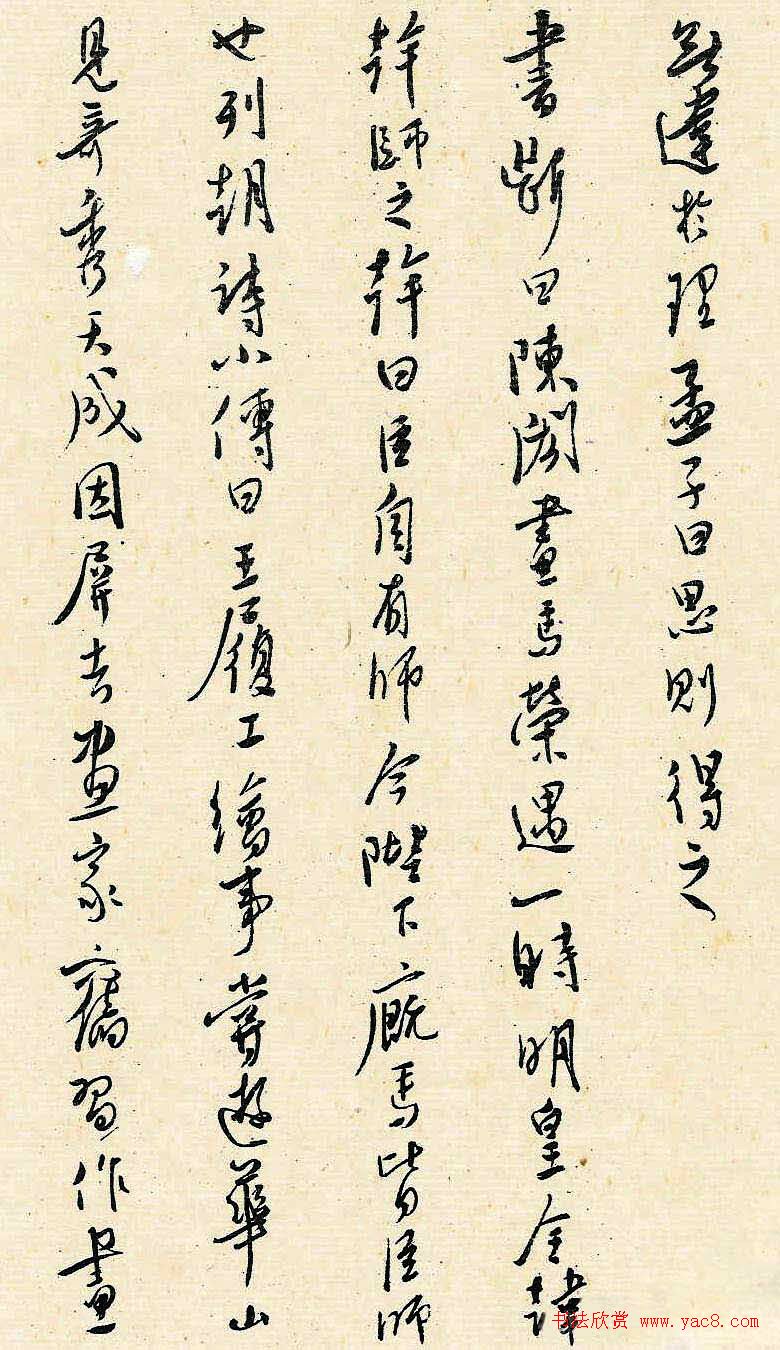 無違於理孟子曰思則得之
書斷曰陳閎畫馬榮遇一時明皇令韓
幹師之幹曰臣自有師今陛下廄馬皆臣師
也列朝詩小傳曰王履工繪事嘗遊華山
見奇秀天成因屏去畫家舊習作畫
书法欣赏 www.yac8.com